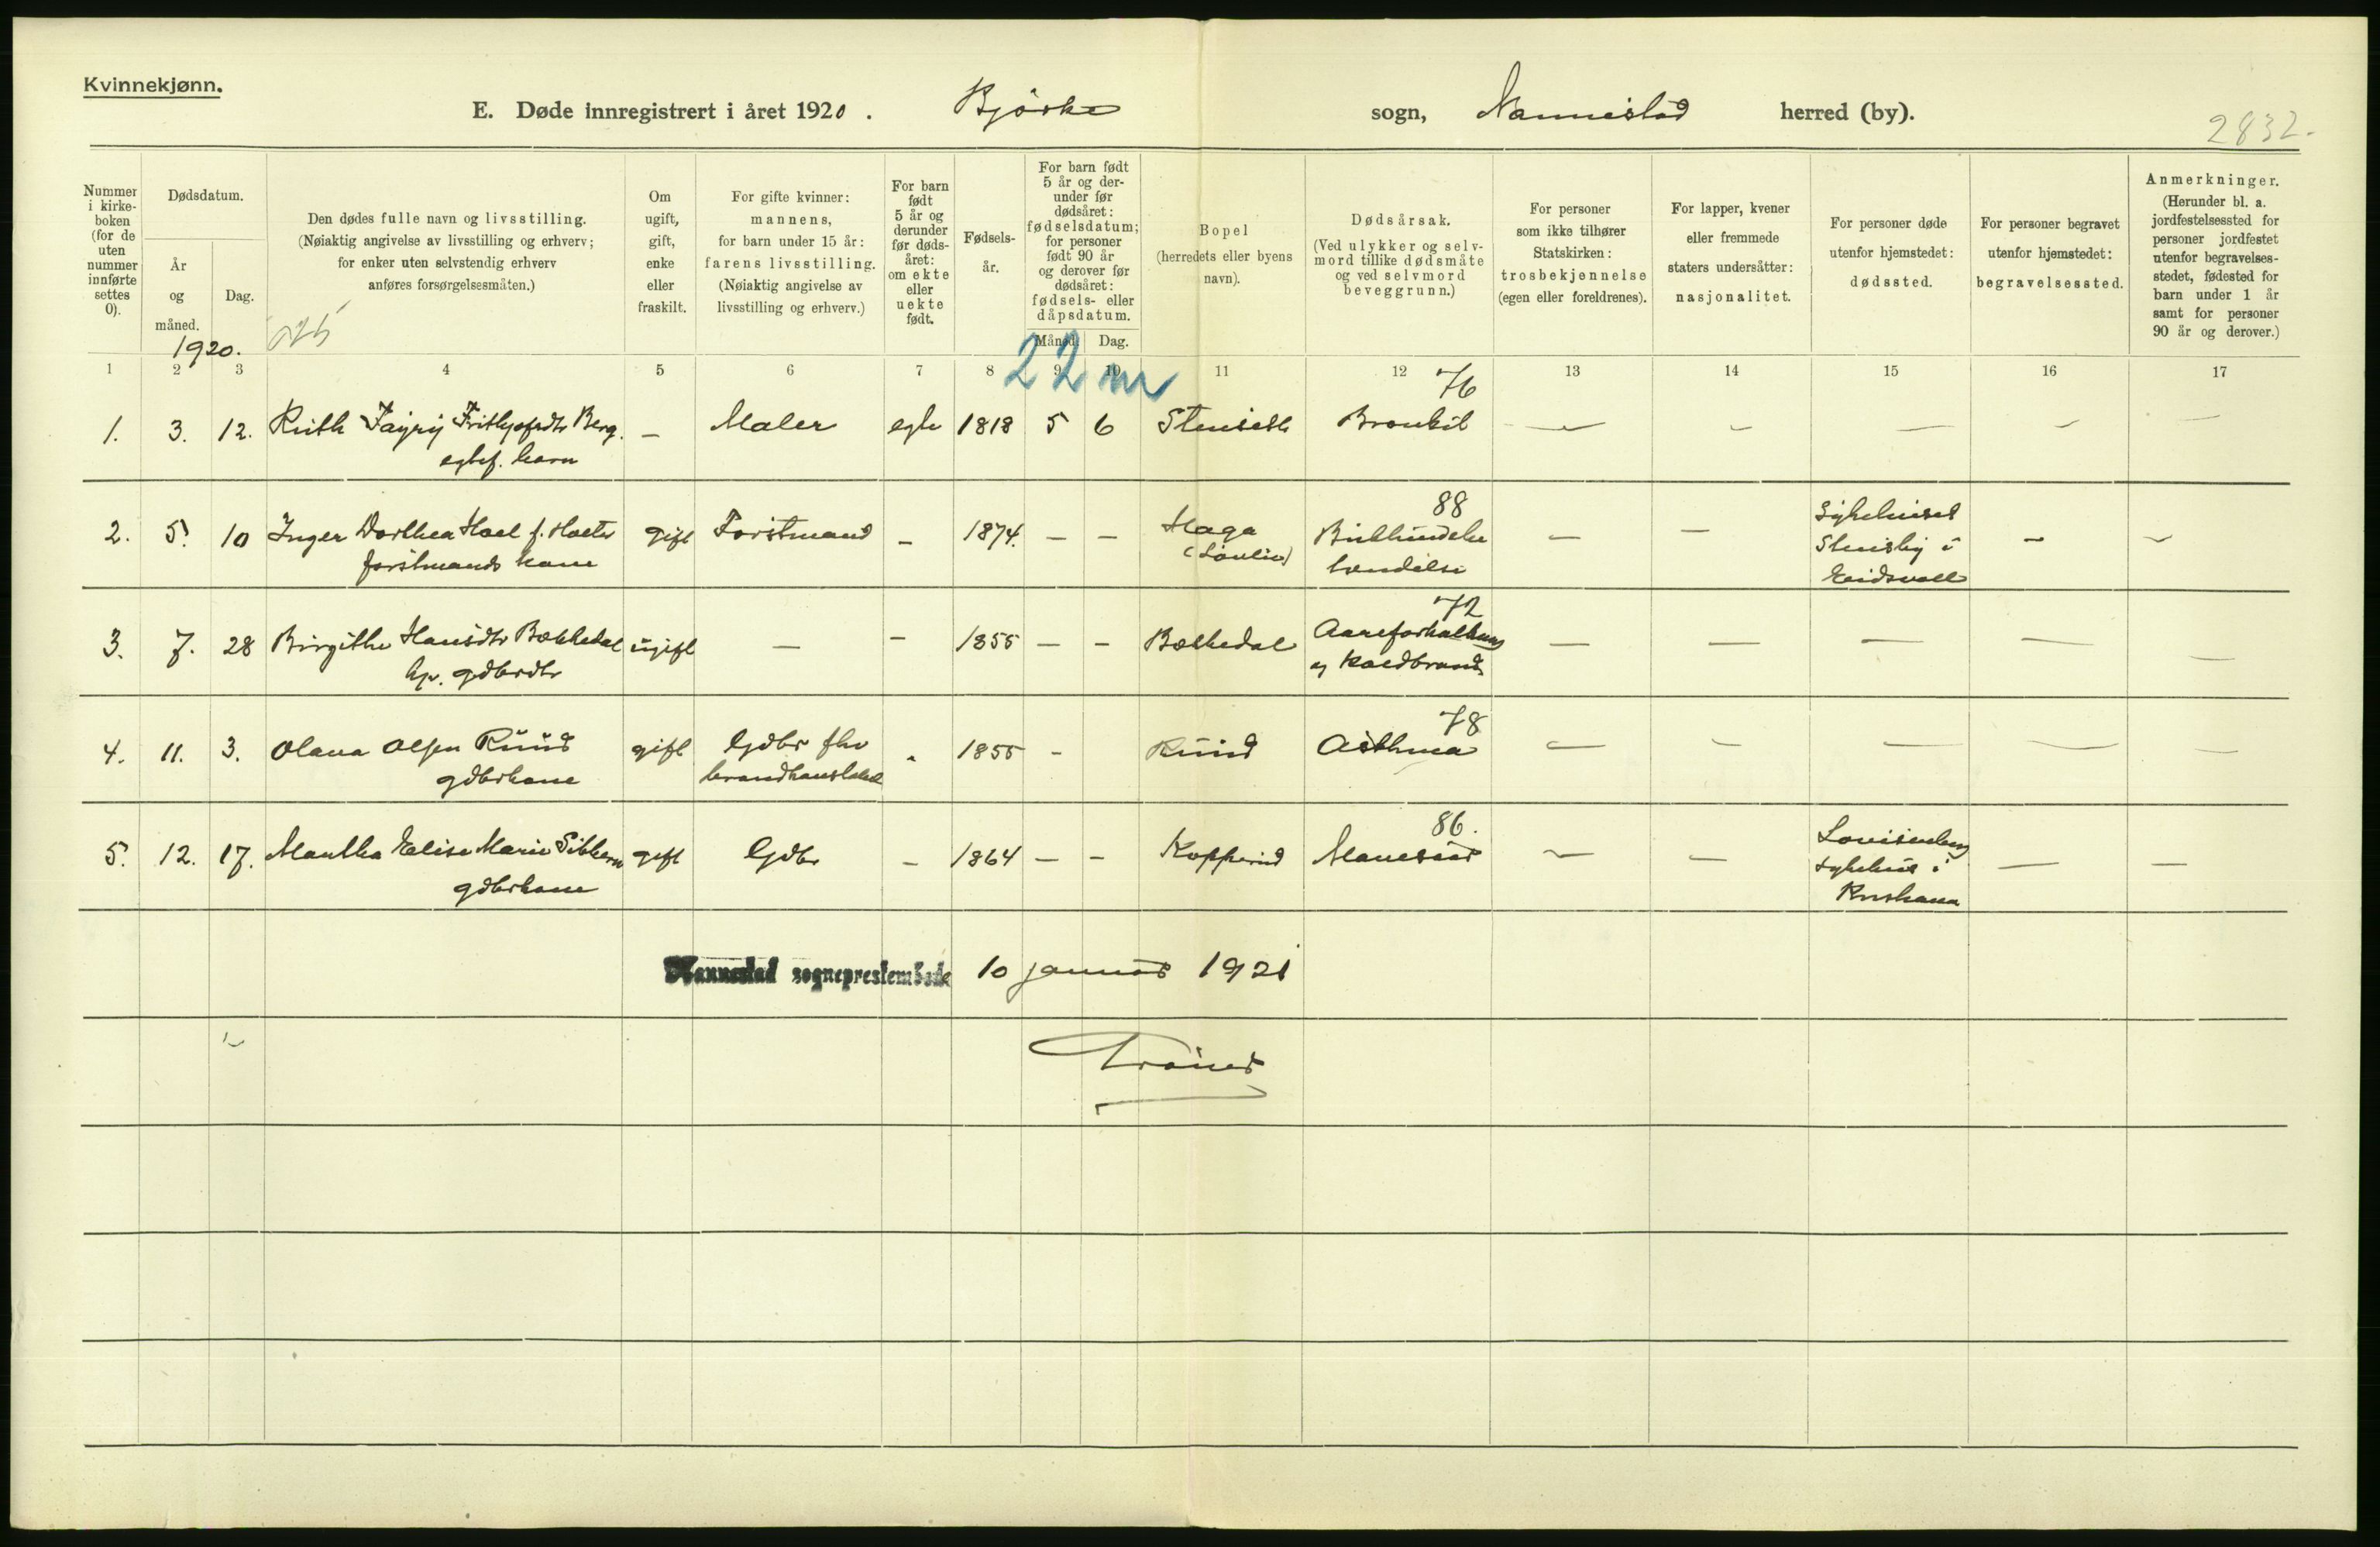 Kvinnekjønn.
E. Døde innregistrert i året 1920. Bjørke sogn, Nannestad herred (by).
2832.
Nummer i kirkeboken (for de uten nummer innførte settes 0).
Dødsdatum.
År og måned.
Dag.
Den dødes fulle navn og livsstilling.
(Nøiaktig angivelse av livsstilling og erhverv; for enker uten selvstendig erhverv anføres forsørgelsesmåten.)
Om ugift, gift, enke eller fraskilt.
For gifte kvinner: mannens, for barn under 15 år: farens livsstilling.
(Nøiaktig angivelse av livsstilling og erhverv.)
For barn født 5 år og derunder før dødsåret: om ekte eller uekte født.
Fødselsår.
For barn født 5 år og derunder før dødsåret: fødselsdatum; for personer født 90 år og derover før dødsåret: fødsels- eller dåpsdatum.
Måned. Dag.
Bopel (herredets eller byens navn).
Dødsårsak.
(Ved ulykker og selvmord tillike dødsmåte og ved selvmord beveggrunn.)
For personer som ikke tilhører Statskirken: trosbekjennelse (egen eller foreldrenes).
For lapper, kvener eller fremmede staters undersåtter: nasjonalitet.
For personer døde utenfor hjemstedet: dødssted.
For personer begravet utenfor hjemstedet: begravelsessted.
Anmerkninger.
(Herunder bl. a. jordfestelsessted for personer jordfestet utenfor begravelsesstedet, fødested for barn under 1 år samt for personer 90 år og derover.)
1920.
22
1 2 3 4 5 6 7 8 9 10 11 12 13 14 15 16 17
76
1. 3. 12. Ruth Fayrij Frithjofsdtr Berg. — Maler egte 1818 5 6 Stenseth Bronkit — — — — —
egtef. barn
88
2. 5. 10 Inger Dorthea Hoel f. Holter gift Forstmand — 1874. — — Haga — — Sykehuset — —
forstmands kone (Løvlien) Stensby i
Eidsvoll
72
3. 7. 28 Birgithe Hansdtr Bækkedal ugift — — 1855 — — Bækkedal Aareforkalkning — — — — —
gdbrdtr og Koldbrand
78
4. 11. 3. Olava Olsen Ruud gift Gdbr fhv - 1855 - Ruud Asthma — — — — —
gdbrkone
86.
5. 12. 17. Martha Elise Marie Sibbern gift Gdbr — 1864 — — Kopperud — — Lovisenberg — —
gdbrkone sykehus i
Krishania
Nannestad sogneprestembede 10 januar 1921